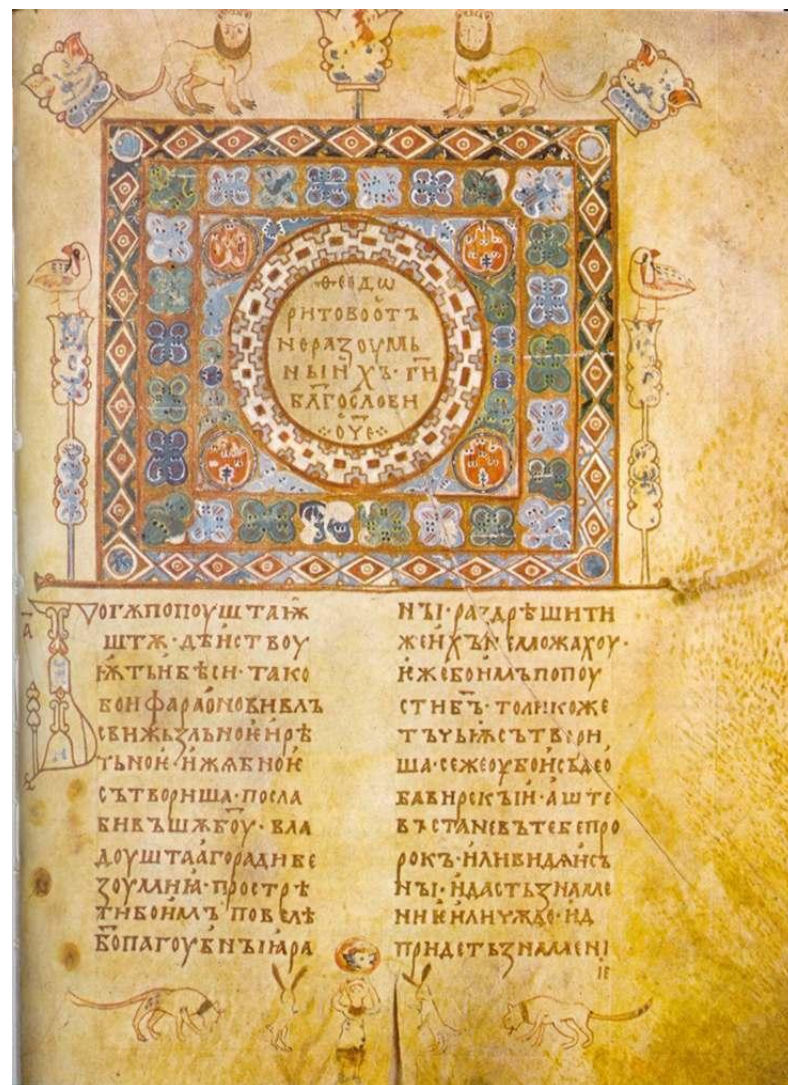 Ѳеодѡ
ритово отъ
неразоумь
ныихъ· г҃н
бл҃гослови
о҃ѵе
а҃
Богѫ попоушта\u0463\u044e
штѫ· дѣиствоу
ѭтъ и бѣси· тако
бо и фараонови влъ
сви жьзльное и рѣ
чьное и жѧбное
сътвориша· посла
бивъшѫ б҃оу· вла
доушта аго ради бе
зоумиꙗ· прострѣ
ти бо имъ повелѣ
бо пагоубнꙑꙗ ра
нꙑ· раздрѣшити
же ихъ не можахоу·
ѥже бо имъ попоу
сти б҃ъ· толико же
тъчьѭ сътвори
ша се же оубо и сьде о
бавирскꙑи· аште
въстанеть въ тебе про
рокъ· или видѧи съ
нꙑ· и дасть знаме
ниѥ или чюждо· и
придеть знамени
ѥ